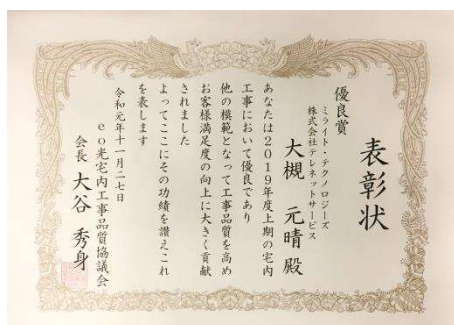 表彰状
優良賞
ミライト・テクノロジーズ
株式会社テレネットサービス
大槻 元晴 殿
あなたは2019年度上期の宅内
工事において優良であり
他の模範となって工事品質を高め
お客様満足度の向上に大きく貢献
されました
よってここにその功績を讃えこれ
を表します
令和元年十一月二七日
eo光宅内工事品質協議会
会長 大谷 秀身